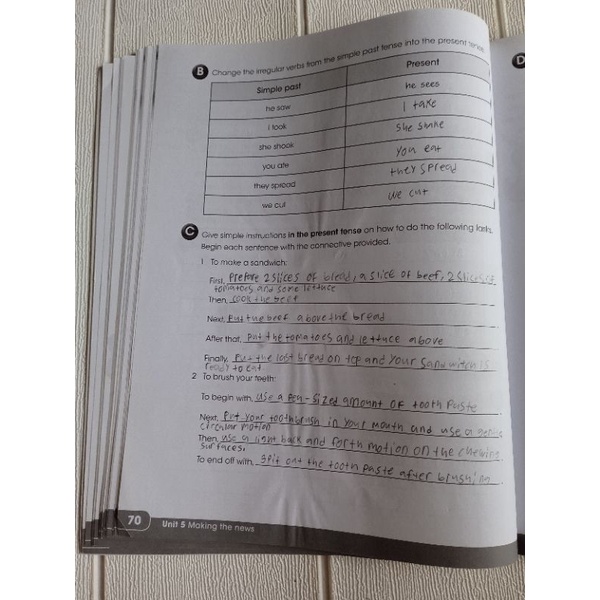 B Change the irregular verbs from the simple past tense into the present tense.
Simple past Present
he saw he sees
i took I take
she shook she shake
you ate you eat
they spread they spread
we cut we cut
C Give simple instructions in the present tense on how to do the following tasks.
Begin each sentence with the connective provided.
1 To make a sandwich:
First, Prepare 2 slices of bread, a slice of beef, 2 slices of
tomatoes and some lettuce
Then, cook the beef
Next, Put the beef above the bread
After that, Put the tomatoes and lettuce above
Finally, Put the last bread on top and your sandwitch is
ready to eat
2 To brush your teeth:
To begin with, use a Pea-sized amount of tooth paste
Next, Put your toothbrush in your mouth and use a gentle
circular motion
Then, use a light back and forth motion on the chewing
surfaces.
To end off with, spit out the tooth paste after brushing
70 Unit 5 Making the news
D